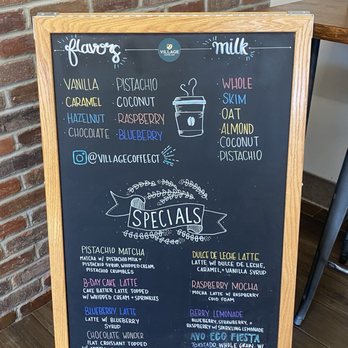 flavors
VILLAGE
milk
VANILLA
CARAMEL
HAZELNUT
· CHOCOLATE
· PISTACHIO
· COCONUT
· RASPBERRY
· BLUEBERRY
· WHOLE
· SKIM
· OAT
· ALMOND
· COCONUT
· PISTACHIO
@VILLAGECOFFEECT
SPECIALS
PISTACHIO MATCHA
MATCHA W/ PISTACHIO MILK +
PISTACHIO SYRUP, WHIPPED CREAM,
PISTACHIO CRUMBLES
B-DAY CAKE LATTE
CAKE BATTER LATTE TOPPED
W/ WHIPPED CREAM + SPRINKLES
BLUEBERRY LATTE
LATTE W/ BLUEBERRY
SYRUP
CHOCOLATE WONDER
FLAT CROISSANT TOPPED
DULCE DE LECHE LATTE
LATTE W/ DULCE DE LECHE,
CARAMEL + VANILLA SYRUP
RASPBERRY MOCHA
MOCHA LATTE W/ RASPBERRY
COLD FOAM
BERRY LEMONADE
BLUEBERRY, STRAWBERRY, +
RASPBERRY W/ SPARKLING LEMONADE
AVO EGG FIESTA